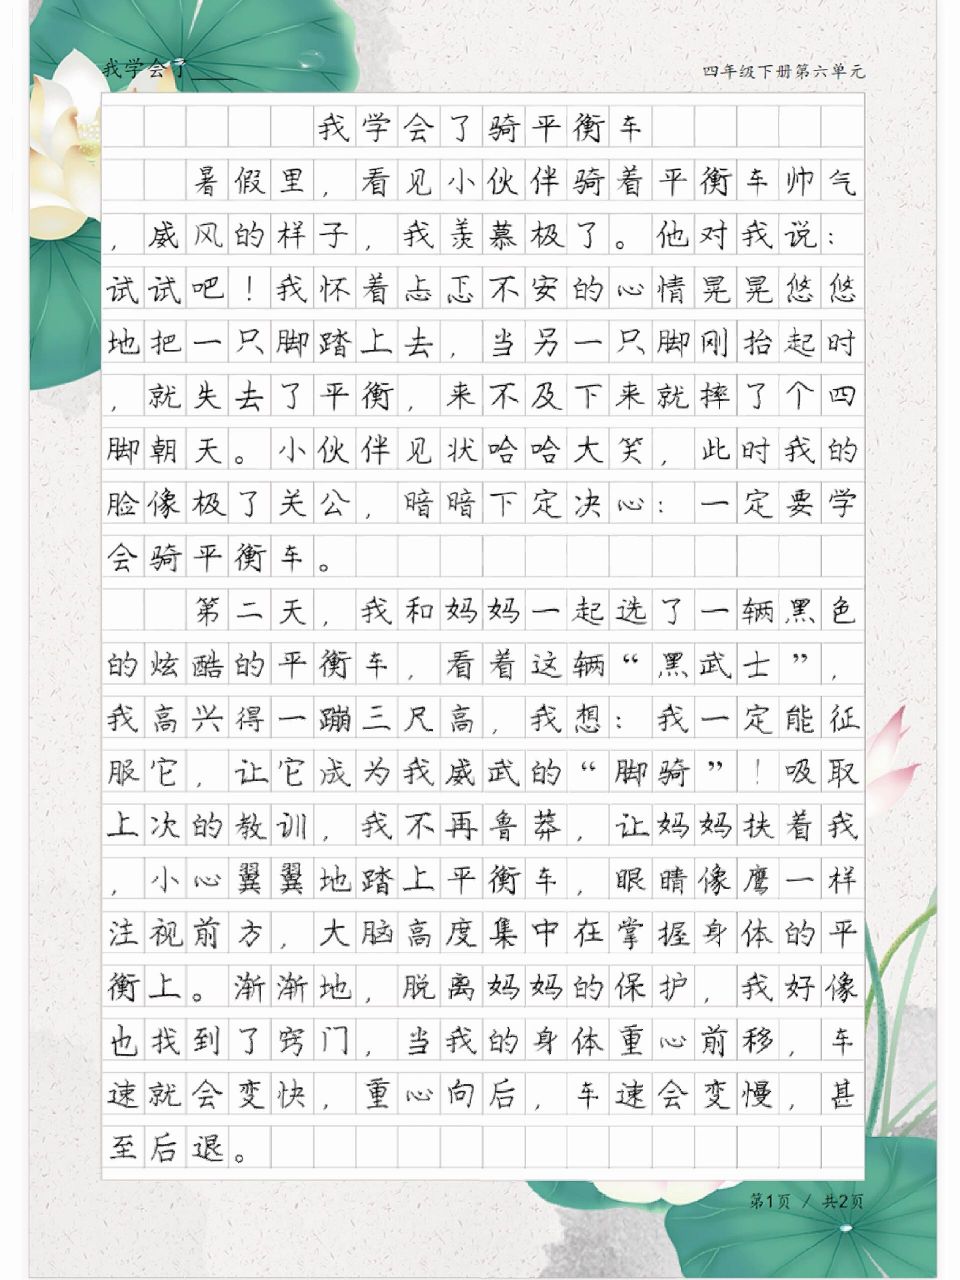 我学会了____
四年级下册第六单元
我学会了骑平衡车
暑假里，看见小伙伴骑着平衡车帅气
，威风的样子，我羡慕极了。他对我说：
试试吧！我怀着忐忑不安的心情晃晃悠悠
地把一只脚踏上去，当另一只脚刚抬起时
，就失去了平衡，来不及下来就摔了个四
脚朝天。小伙伴见状哈哈大笑，此时我的
脸像极了关公，暗暗下定决心：一定要学
会骑平衡车。
第二天，我和妈妈一起选了一辆黑色
的炫酷的平衡车，看着这辆“黑武士”，
我高兴得一蹦三尺高，我想：我一定能征
服它，让它成为我威武的“脚骑”！吸取
上次的教训，我不再鲁莽，让妈妈扶着我
，小心翼翼地踏上平衡车，眼睛像鹰一样
注视前方，大脑高度集中在掌握身体的平
衡上。渐渐地，脱离妈妈的保护，我好像
也找到了窍门，当我的身体重心前移，车
速就会变快，重心向后，车速会变慢，甚
至后退。
第1页 / 共2页